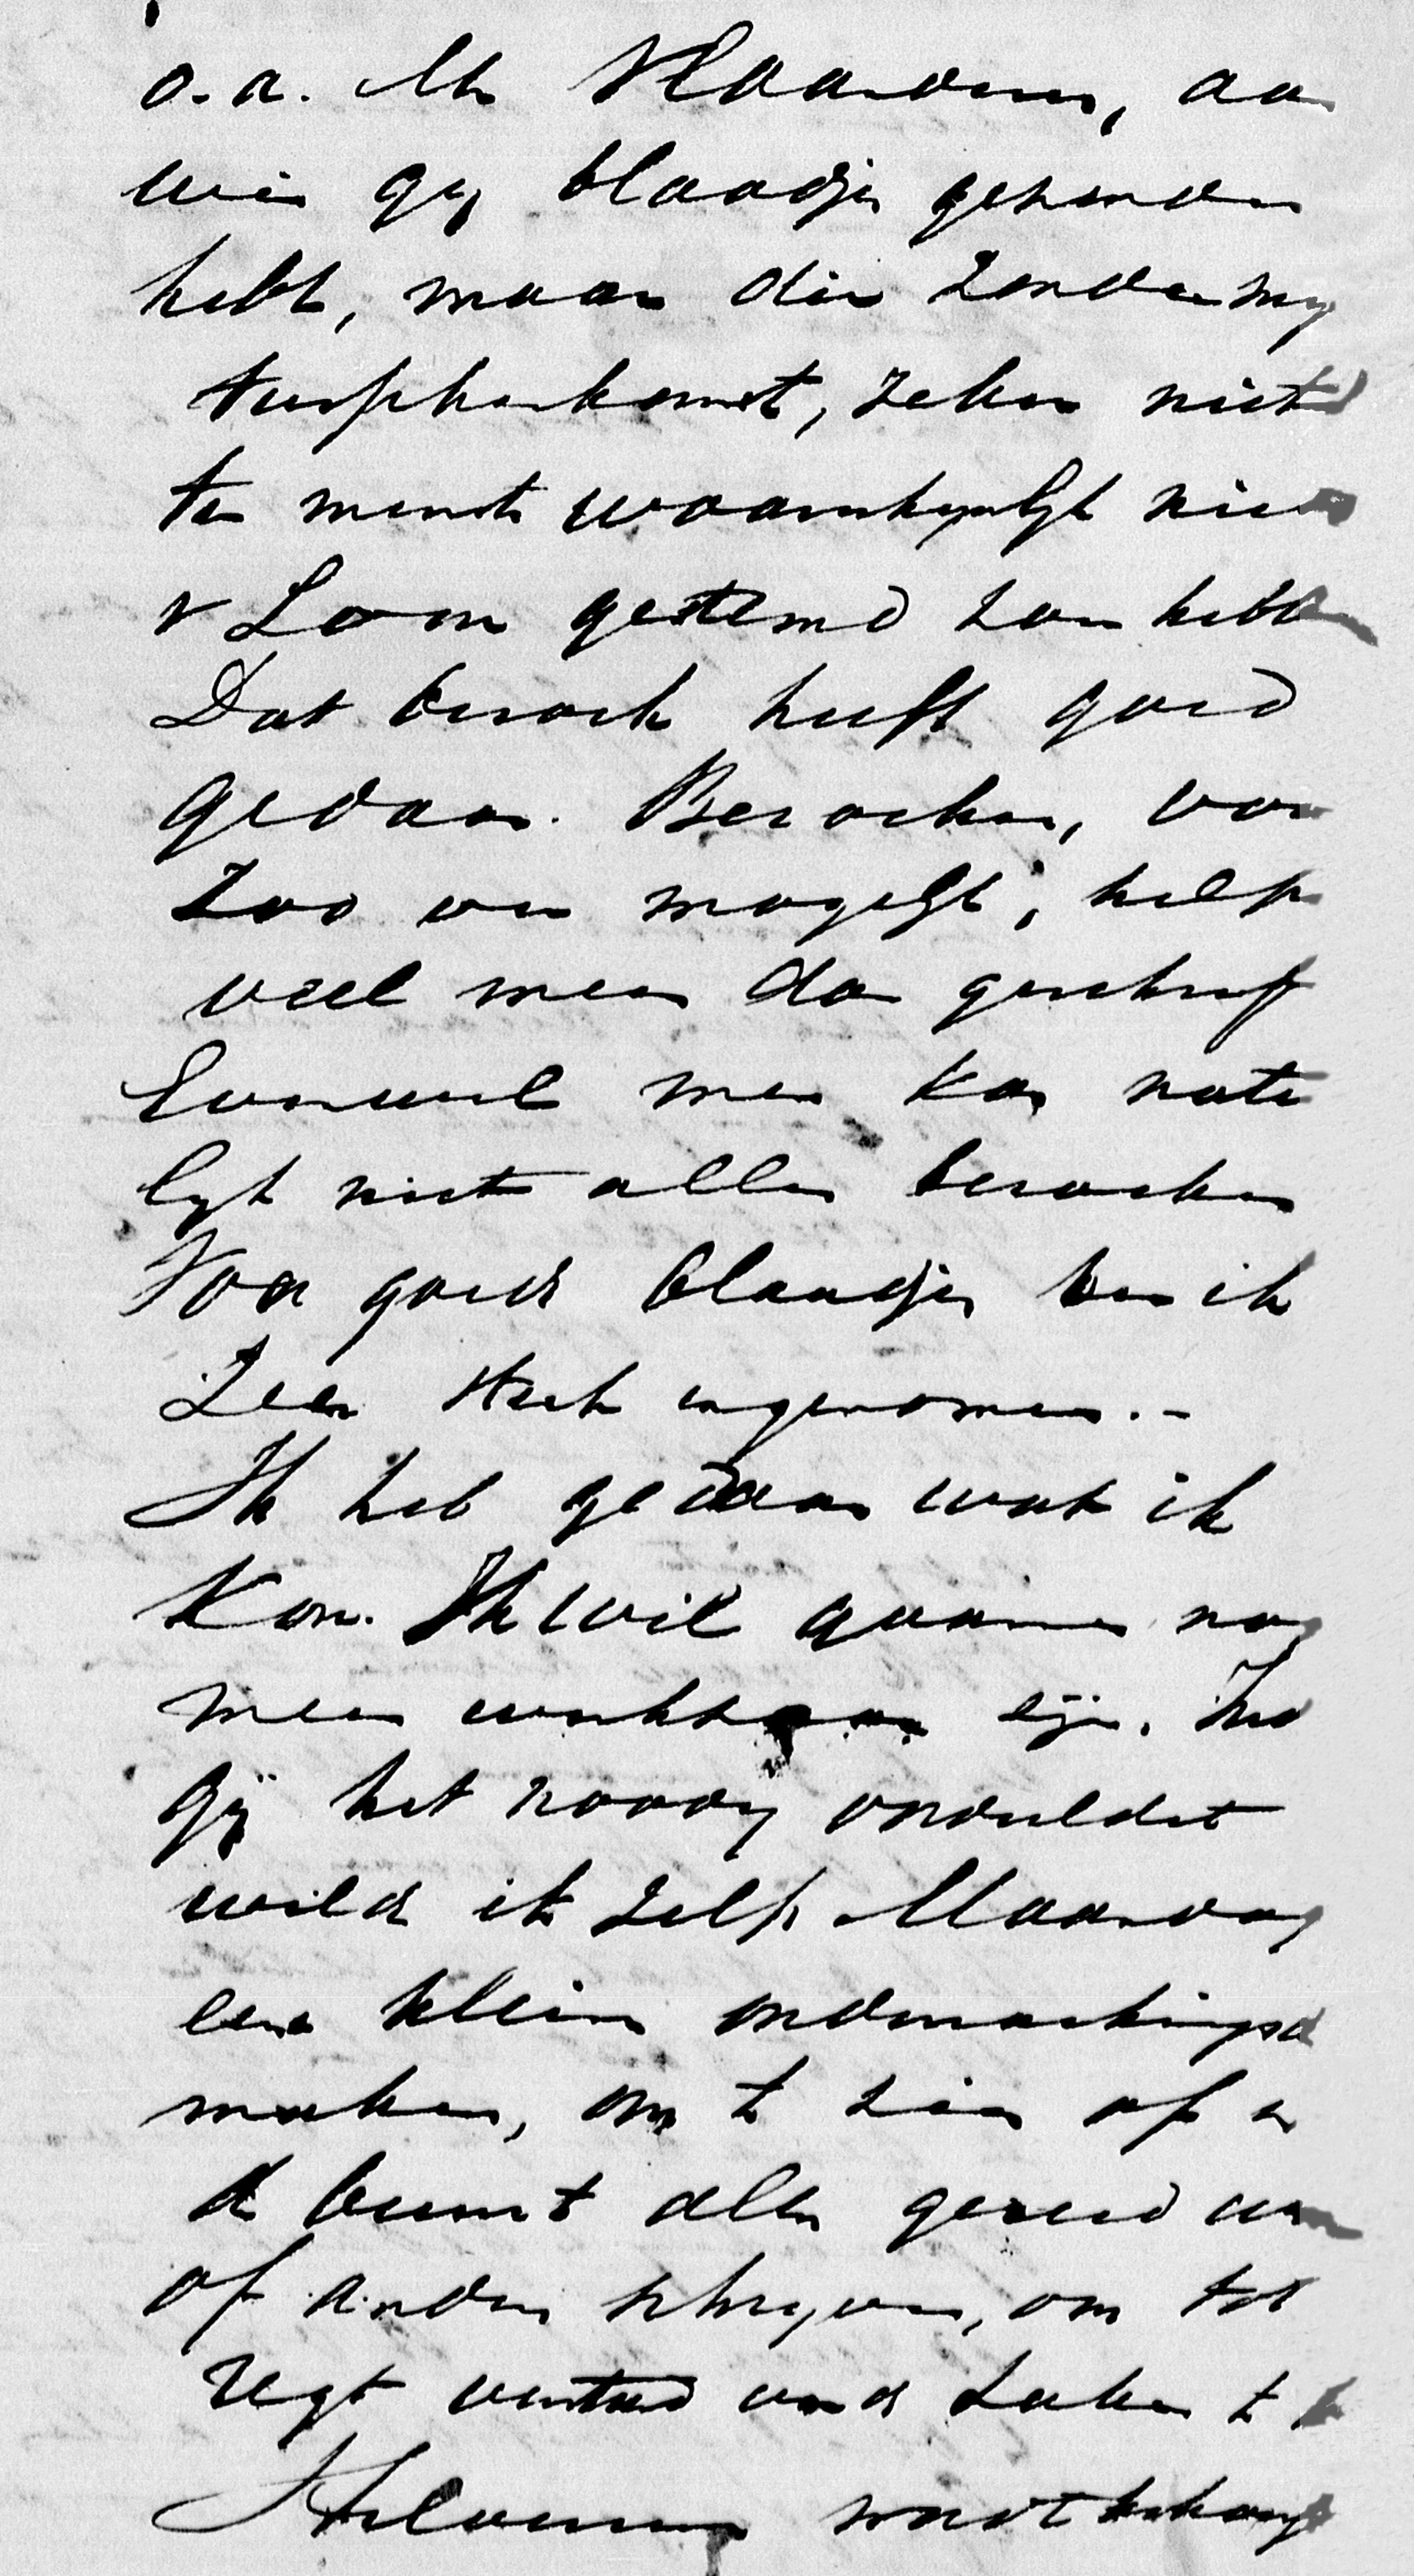 o.a. Mr Vlaanderen, aan
wien gij blaadjes gezonden
hebt, maar die zonder mijn
tusschenkomst, zeker niet
ten minste waarschijnlijk niet
v Loon gestemd zou hebben
Dat bezoek heeft goed
gedaan. Bezoeken, voor
zoo ver mogelijk, helpen
veel meer dan geschrijf
Evenwel men kan natuur
lijk niet allen bezoeken
Voor goede blaadjes ben ik
zeer sterk ingenomen. -
Ik heb gedaan wat ik
kon. Ik wil gaarne nog
meer werkzaam zijn. Indien
gij het noodig oordeeldet
wilde ik zelf Maandag
eene kleine
maken, om te zien of in
de buurt allen gereed
of anders schrijven, om tot
regt verstand van de zaken te
wordt